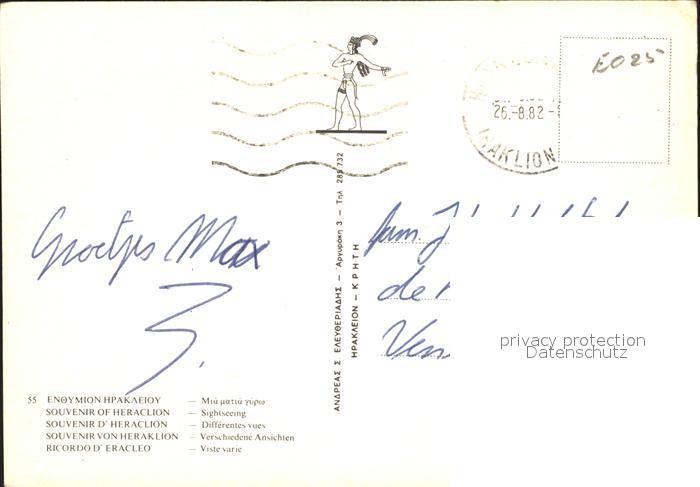 E025
26.-8.82
IRAKLION
Groetjes Max
fam. J
de
Ven
privacy protection
Datenschutz
ΑΝΔΡΕΑΣ Σ. ΕΛΕΥΘΕΡΙΑΔΗΣ — Ἀργυράκη 3 — Τηλ 285 732
ΗΡΑΚΛΕΙΟΝ – ΚΡΗΤΗ
55 ΕΝΘΥΜΙΟΝ ΗΡΑΚΛΕΙΟΥ — Μιά ματιά γύρω
SOUVENIR OF HERACLION — Sightseeing
SOUVENIR D' HERACLION — Différentes vues
SOUVENIR VON HERAKLION — Verschiedene Ansichten
RICORDO D' ERACLEO — Viste varie